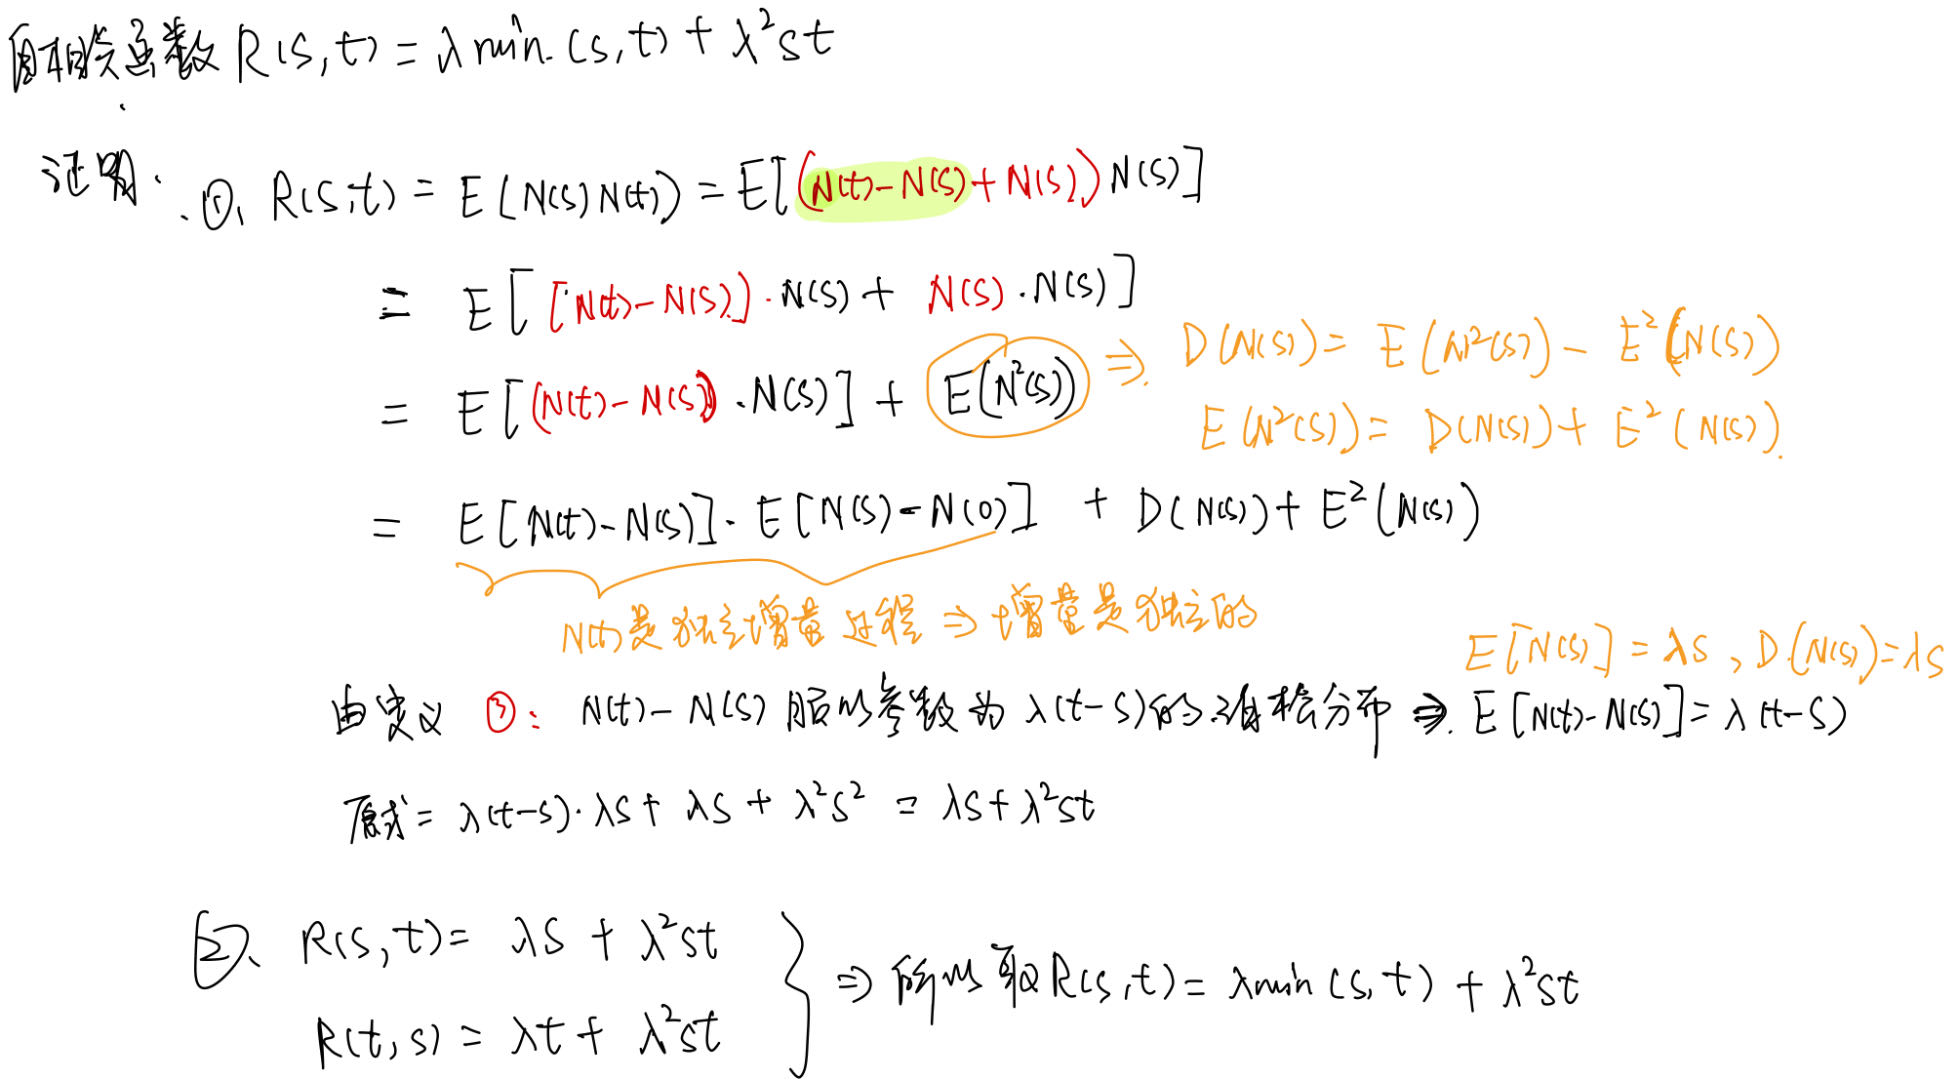 自相关函数 R(s,t) = λ min (s,t) + λ²st
证明. ①、R(s,t) = E(N(s)N(t)) = E[(N(t)-N(s)+N(s))N(s)]
= E[[N(t)-N(s)]·N(s) + N(s)·N(s)]
= E[(N(t)-N(s))·N(s)] + E(N²(s)) ⇒ D(N(s)) = E(N²(s)) - E²(N(s))
E(N²(s)) = D(N(s)) + E²(N(s))
= E[N(t)-N(s)]·E[N(s)-N(0)] + D(N(s)) + E²(N(s))
N(t)是独立增量过程 ⇒ 增量是独立的
E[N(s)] = λs, D(N(s)) = λs
由定义 ③: N(t)-N(s) 服从参数为 λ(t-s)的泊松分布 ⇒ E[N(t)-N(s)] = λ(t-s)
原式 = λ(t-s)·λs + λs + λ²s² = λs + λ²st
②、R(s,t) = λs + λ²st
R(t,s) = λt + λ²st
⇒ 所以取R(s,t) = λmin(s,t) + λ²st